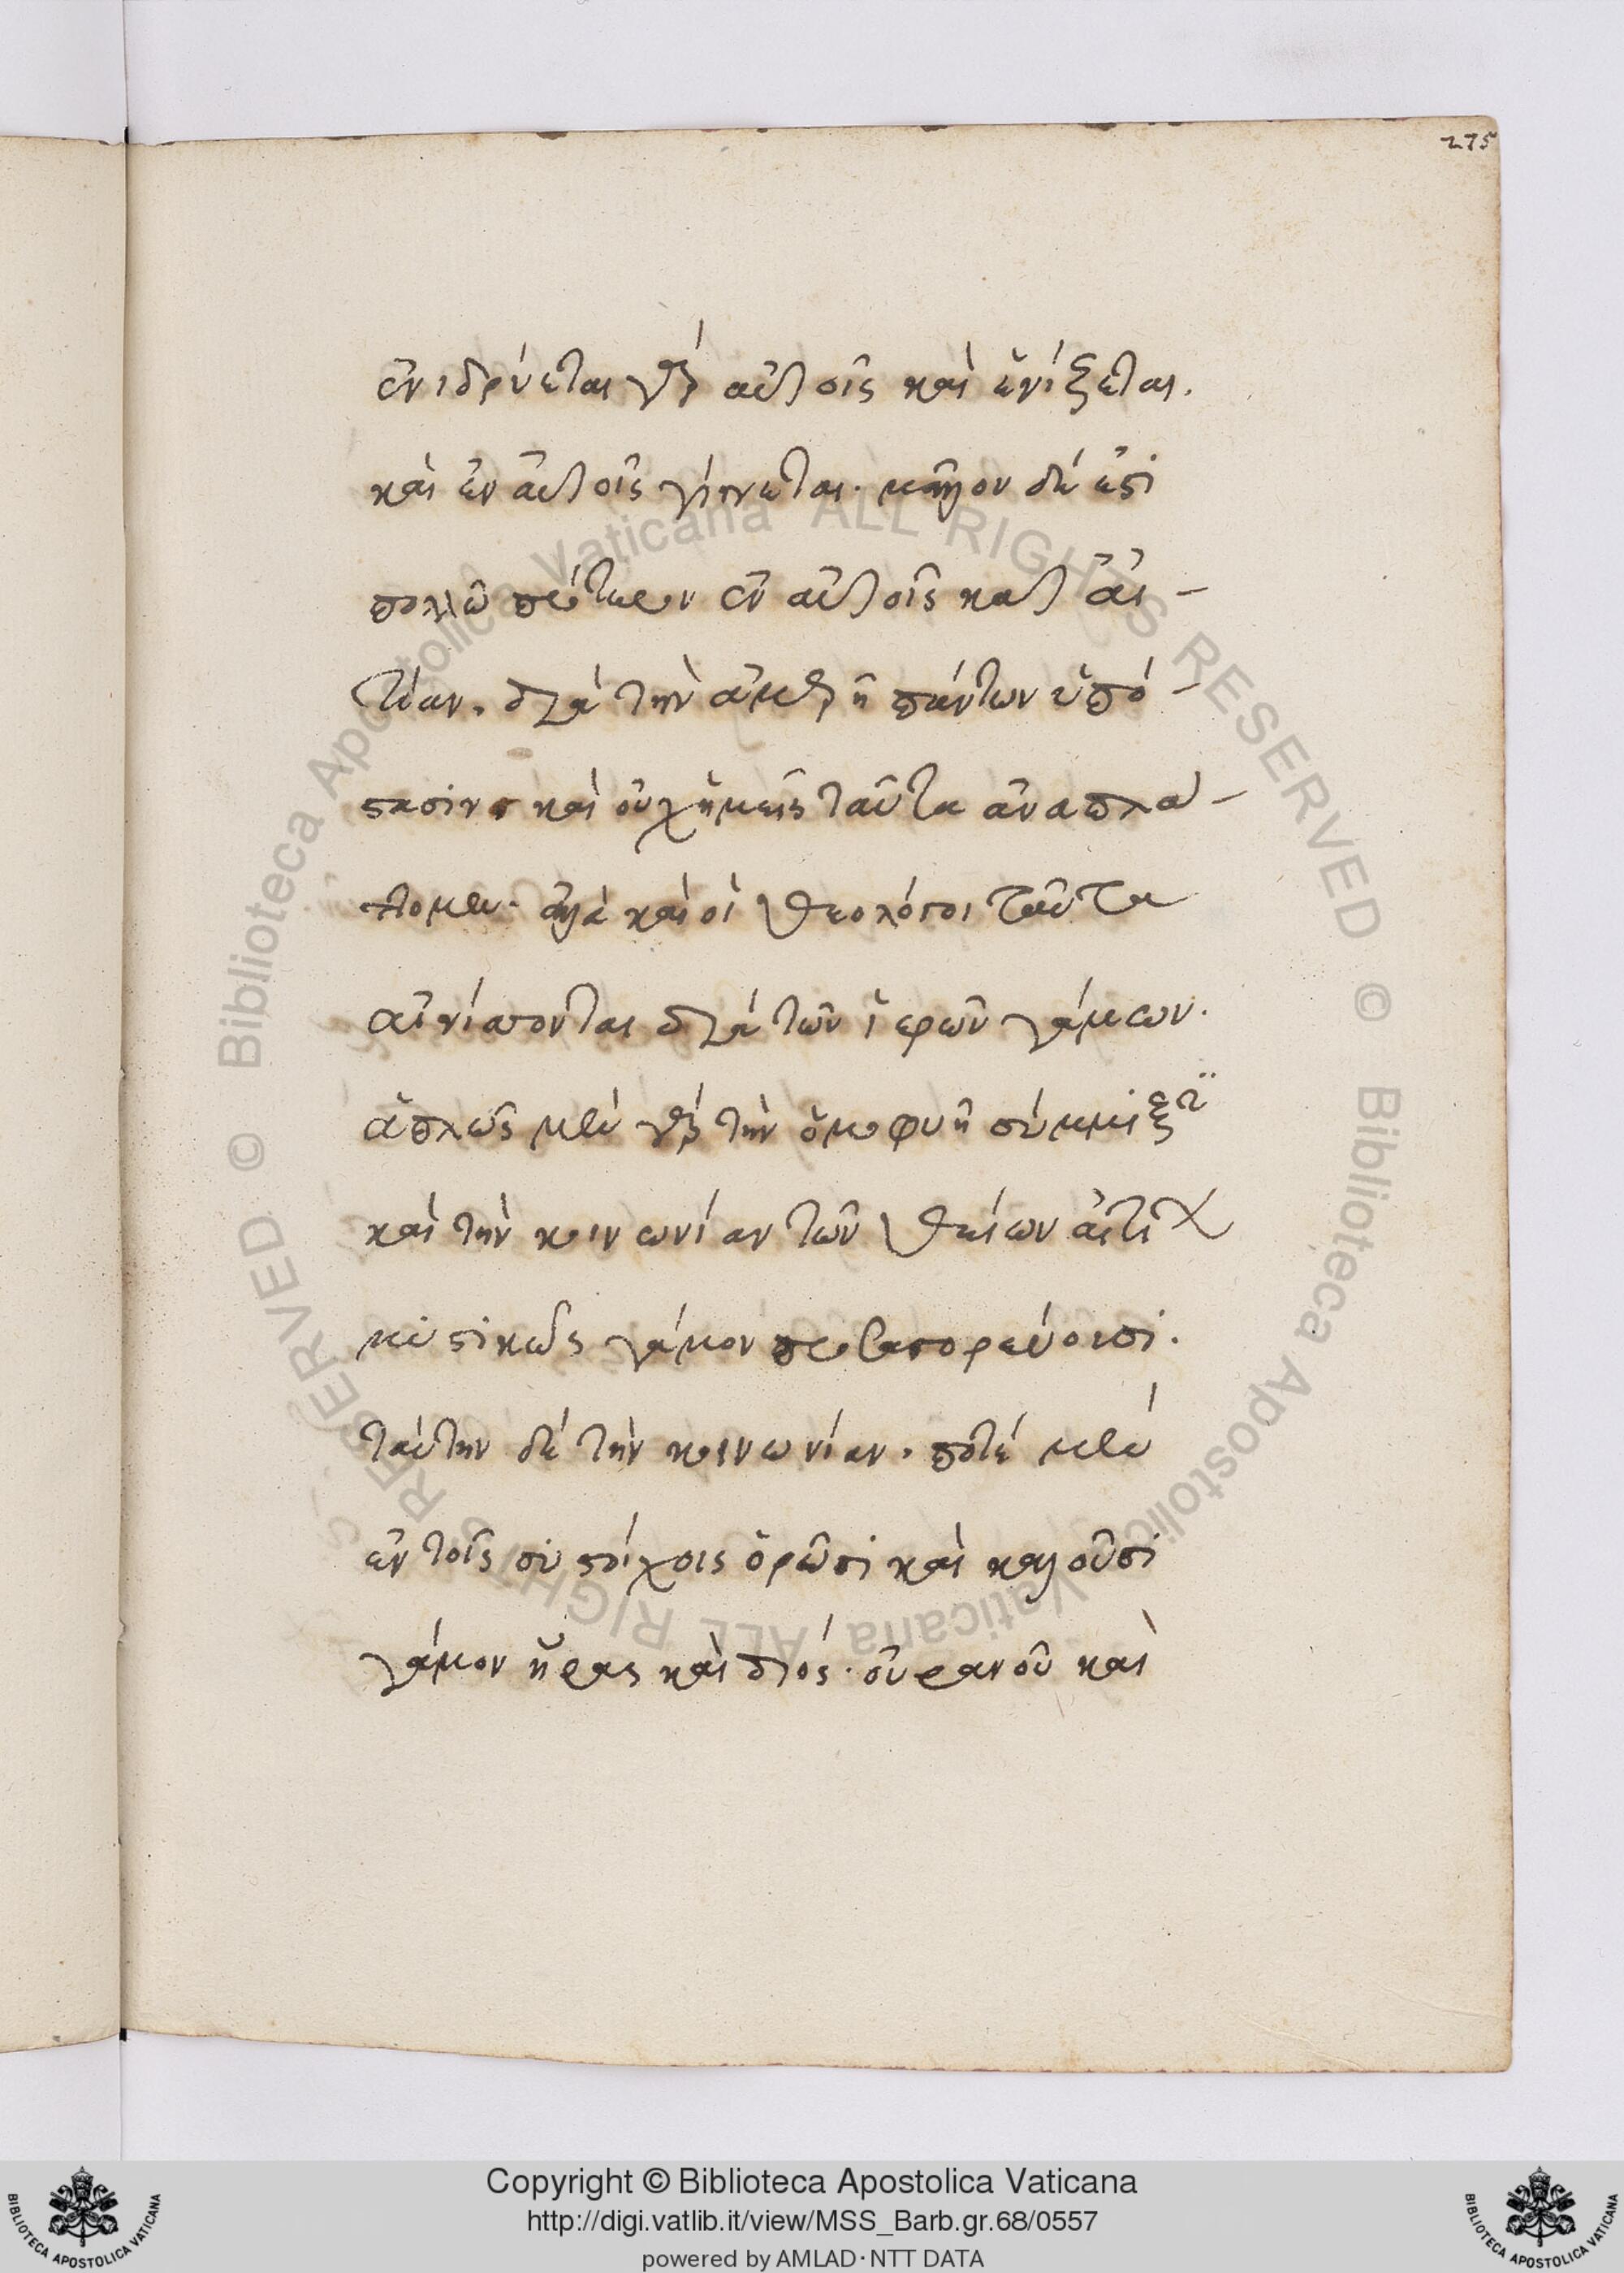 275
ἐνιδρύεται γὰρ αὐτοῖς καὶ ἐνίζεται.
καὶ ἐν αὐτοῖς γίγνεται· μᾶλλον δέ ἐστι
πολλῷ πρότερον ἐν αὐτοῖς κατ' αἰ-
τίαν, διὰ τὴν ἀμερῆ πάντων ὑπό-
στασιν· καὶ οὐχ ἡμεῖς ταῦτα ἀναπλά-
ττομεν· ἀλλὰ καὶ οἱ θεολόγοι ταῦτα
αἰνίττονται διὰ τῶν ἱερῶν γάμων.
ἁπλῶς μὲν γὰρ τὴν ὁμοφυῆ σύμμιξιν
καὶ τὴν κοινωνίαν τῶν θείων αἰτιῶν
μυστικῶς γάμον προσαγορεύουσι.
ταύτην δὲ τὴν κοινωνίαν, ποτὲ μὲν
ἐν τοῖς συστοίχοις ὁρῶσι καὶ καλοῦσι
γάμον ἥρας καὶ διός· οὐρανοῦ καὶ
Biblioteca Apostolica Vaticana ALL RIGHTS RESERVED ©
Biblioteca Apostolica Vaticana ALL RIGHTS RESERVED ©
Copyright © Biblioteca Apostolica Vaticana
http://digi.vatlib.it/view/MSS_Barb.gr.68/0557
powered by AMLAD·NTT DATA
BIBLIOTECA APOSTOLICA VATICANA
BIBLIOTECA APOSTOLICA VATICANA